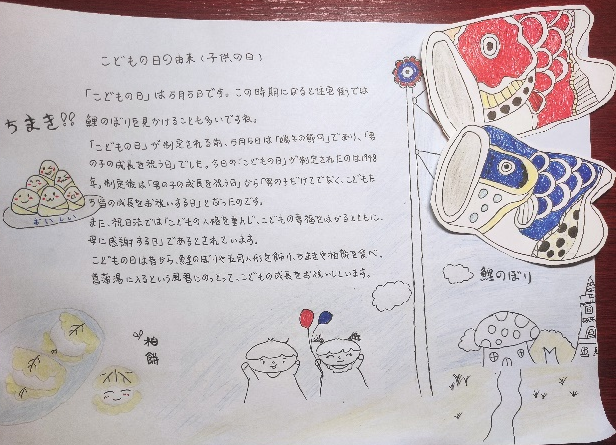 こどもの日の由来(子供の日)
「こどもの日」は5月5日です。この時期になると住宅街では
鯉のぼりを見かけることも多いですね。
「こどもの日」が制定される前、5月5日は「端午の節句」であり、「男
の子の成長を祝う日」でした。今日の「こどもの日」が制定されたのは1948
年。制定後は「男の子の成長を祝う日」から「男の子だけでなく、こどもた
ち皆の成長をお祝いする日」となったのです。
また、祝日法では「こどもの人格を重んじ、こどもの幸福をはかるとともに、
母に感謝する日」であるとされています。
こどもの日は昔から、鯉のぼりや五月人形を飾り、ちまきや柏餅を食べ、
菖蒲湯に入るという風習にのっとって、こどもの成長をお祝いします。
ちまき!!
鯉のぼり
柏餅
M